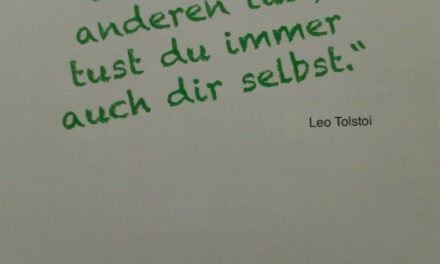 anderen
tust du immer
auch dir selbst.“
Leo Tolstoi